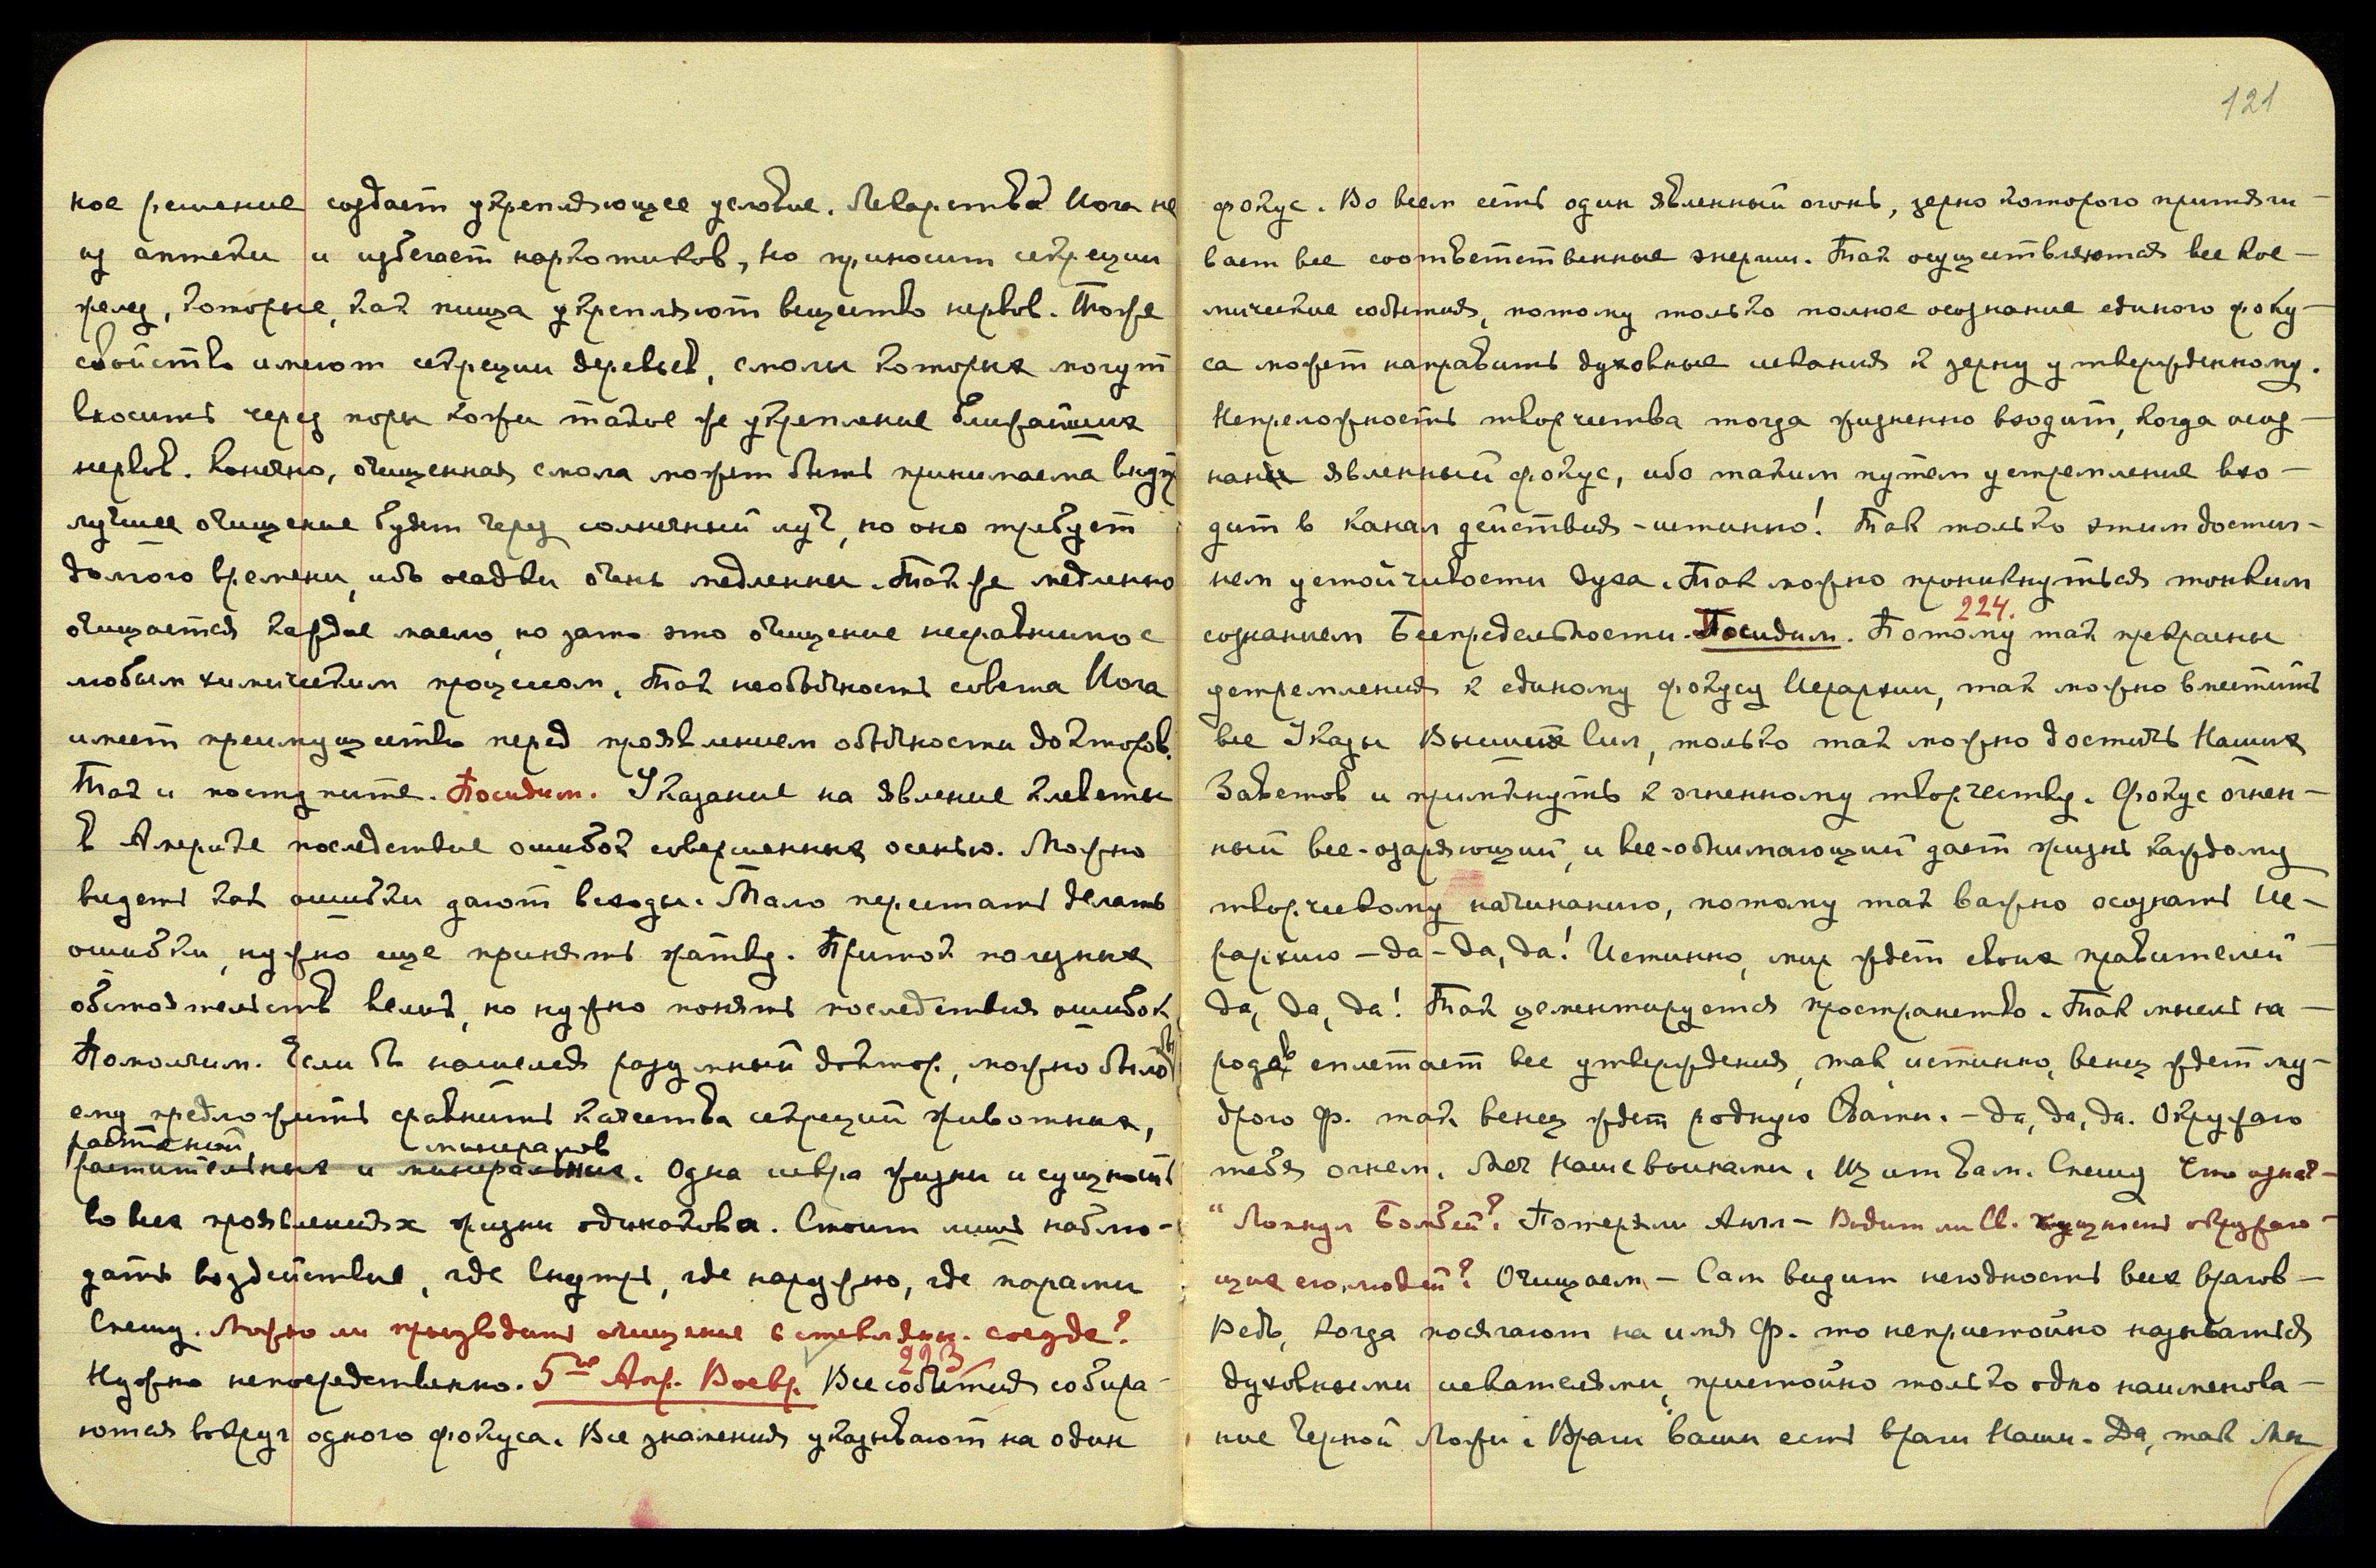 ное решение создает укрепляющее условие. Лекарства Иога не
из аптеки и избегает наркотиков, но приносит секреции
желез, которые, как пища укрепляют вещество нервов. Тоже
свойство имеют секреции деревьев, смолы которых могут
вносить через поры кожи такое же укрепление ближайших
нервов. Конечно, очищенная смола может быть принимаема внутрь
лучшее очищение будет через солнечный луч, но оно требует
долгого времени, ибо осадки очень медленны. Так же медленно
очищается каждое масло, но зато это очищение несравнимо с
любым химическим процессом. Так необычность совета Иога
имеет преимущество перед проявлением обычности докторов.
Так и поступите. Посидим. Указание на явление клеветы
в Америке последствие ошибок совершенных осенью. Можно
видеть как ошибки дают всходы. Мало перестать делать
ошибки, нужно еще принять жатву. Приток полезных
обстоятельств велик, но нужно понять последствия ошибок
Помолчим. Если бы нашелся разумный доктор, можно было бы
ему предложить сравнить качества секреций животных,
растений минералов
растительных и минеральных. Одна искра жизни и сущность
во всех проявлениях жизни одинакова. Стоит лишь наблю-
дать воздействие, где внутрь, где наружно, где парами
Спешу. Можно ли производить очищение в стеклянн. сосуде?
Нужно непосредственно. 5го Апр. Воскр. 223 Все события собира-
ются вокруг одного фокуса. Все знамения указывают на один
121
фокус. Во всем есть один явленный огонь, зерно которого притяги-
вает все соответственные энергии. Так осуществляются все кос-
мические события, потому только полное осознание единого фоку-
са может направить духовные искания к зерну утвержденному.
Непреложность творчества тогда жизненно входит, когда осоз-
нан явленный фокус, ибо таким путем устремление вхо-
дит в канал действия - истинно! Так только этим достиг-
нем устойчивости духа. Так можно проникнуться тонким
224.
сознанием Беспредельности. Посидим. Потому так прекрасны
устремления к единому фокусу Иерархии, так можно вместить
все Указы Высших Сил, только так можно достичь Наших
Заветов и примкнуть к огненному творчеству. Фокус огнен-
ный все-озаряющий, и все-обнимающий дает жизнь каждому
творческому начинанию, потому так важно осознать Ие-
рархию - да - да, да! Истинно, мир ждет своих правителей -
да, да, да! Так цементируется пространство. Так мысль на-
родов сплетает все утверждения, так, истинно, венец ждет му-
дрого Ф. так венец ждет родную Свати. - да, да, да. Окружаю
тебя огнем. Меч Наш с вынками. Щит вам. Спешу Что означ-
" Лопнул Бомбей"? Потеряли Англ - Видит ли Св. сущность окружаю-
щих его людей? Очищаем - Сам видит негодность всех врагов -
Ведь, когда посягают на имя Ф. то непристойно называться
духовными искателями, пристойно только одно наименова-
ние Черной Ложи. Враги ваши есть враги Наши. Да, так Мы